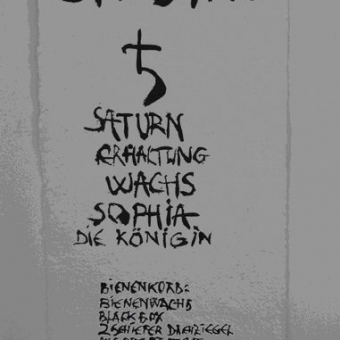 ♄
SATURN
ERHALTUNG
WACHS
SOPHIA
DIE KÖNIGIN
BIENENKORB:
BIENENWACHS
BLACK BOX
2 SCHIEFER DACHZIEGEL